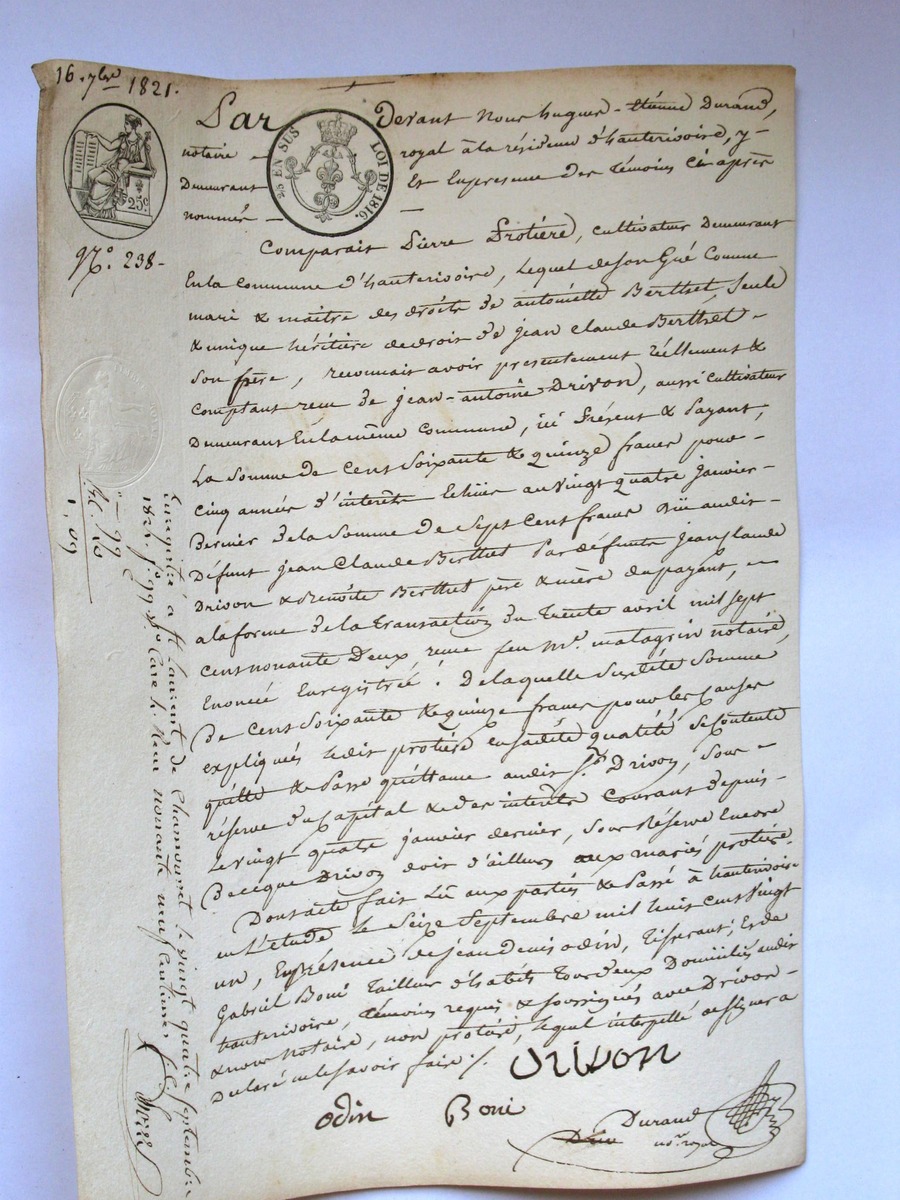 16. 7bre 1821.
Par Devant Nous hugues-étiênne Durand,
notaire - royal à la résidence d'hauterivoire, y-
Demeurant Et En presence des témoins Ci après
nommés - -
25 EN SUS LOI DE 1816.
25c.
No. 238-
Comparait Pierre Protiére, cultivateur Demeurant
En la commune d'hauterivoire, Lequel de son Gré Comme
mari & maitre des droits de antoinétte Berthet, Seule
& unique héritiére de droit de jean Claude Berthet-
Son frére, reconnait avoir presentement réellement &
comptant recu de jean-antoine Drivon, aussi cultivateur
Demeurant En la même commune, ici Présent & Payant,
La Somme de Cent Soixante & quinze francs pour-
cinq années d'intérêts Echus au vingt quatre janvier-
Dernier de la Somme de Sept Cent francs düe audit-
Défunt jean Claude Berthet Par défunts jean Claude
Drivon & Benoîte Berthet pére & mére du payant, -
a la forme de la transaction du trente avril mil sept
cent nonante Deux reçue feu Me. malagrin notaire,
Enoncée Enregistrée. De laquelle Susdite Somme
De Cent Soixante & quinze francs pour les causes
expliquées ledit protiére en sadite qualité Se Contente
quitte & Passe quittance audit Sr. Drivon, Sous-
réserve du Capital & des intérêts Courant depuis-
Le vingt quatre janvier dernier, Sous Réserve Encore
De ce que Drivon doit d'ailleurs aux mariés protiére.
Dont acte fait Lû aux parties & Passé à hauterivoire
en L'étude Le Seize Septembre mil huit cent Vingt
un, En présence de jean denis odin, tisserant, Et de
Gabriel Boni tailleur d'habits tous deux Domiciliés audit
hauterivoire, témoins requis & soussignés avec Drivon-
& nous Notaire, non protiére, lequel interpellé de signer a
Declaré ne le savoir faire /.
Drivon
odin Boni
Durand
nore. royal
Enregistré à St. Laurent de Chamousset le vingt quatre septembre
1821. fo. 99 Vo. Case 4. Reçu nonante neuf centimes
" - 99
10
1, 09